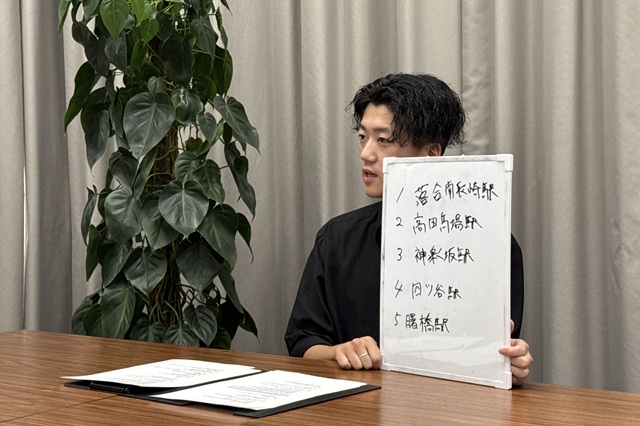 1 落合南長崎駅
2 高田馬場駅
3 神楽坂駅
4 四ツ谷駅
5 曙橋駅